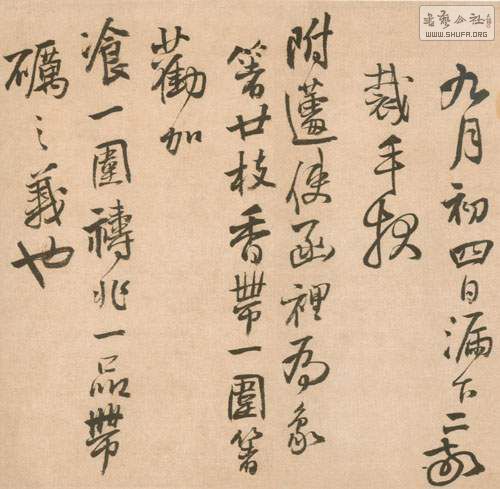 書藝公社
WWW.SHUFA.ORG
九月初四日漏下二刻
裁手
附使函裡為象
箸廿枝香帶一圍箸
勸加
飡一圍禱兆一品帶
礪之義也